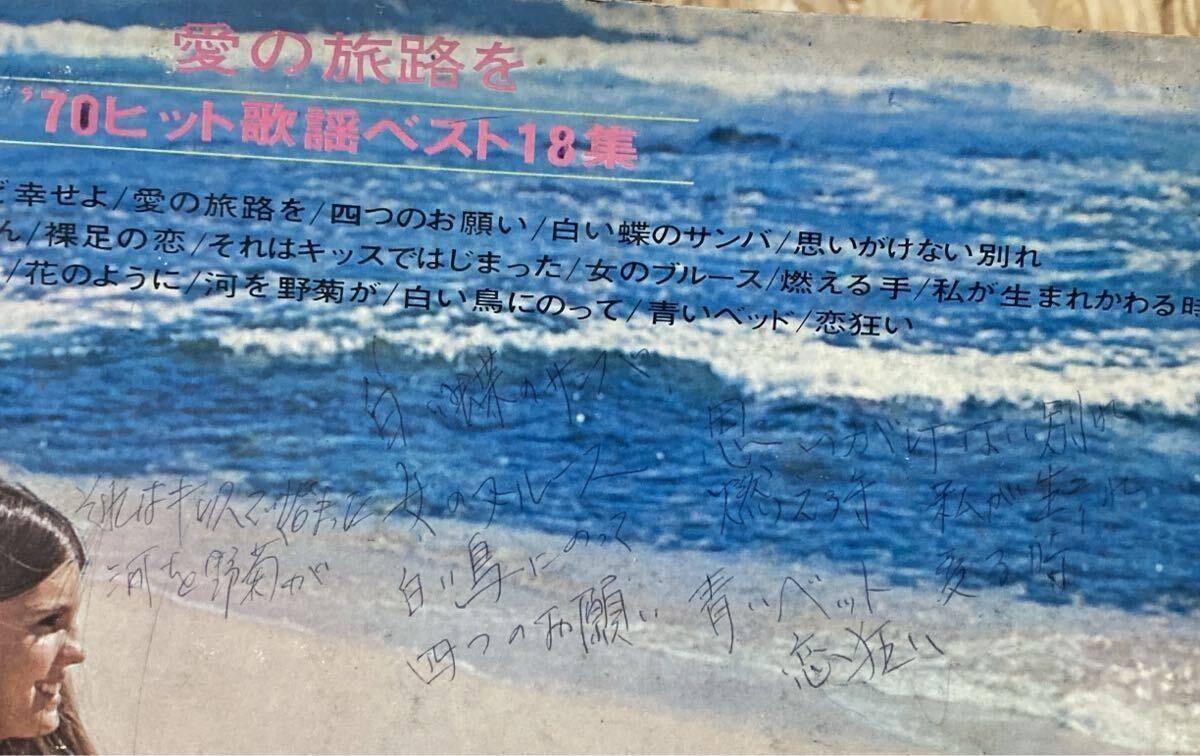 愛の旅路を
'70ヒット歌謡ベスト18集
ど幸せよ/愛の旅路を/四つのお願い/白い蝶のサンバ/思いがけない別れ
ん/裸足の恋/それはキッスではじまった/女のブルース/燃える手/私が生まれかわる時
/花のように/河を野菊が/白い鳥にのって/青いベッド/恋狂い
白い蝶のサンバ
思いがけない別れ
それはキッスで始まった
女のブルース
燃える手
私が生れ
河を野菊が
白い鳥にのって
変る時
四つのお願い
青いベット
恋狂い